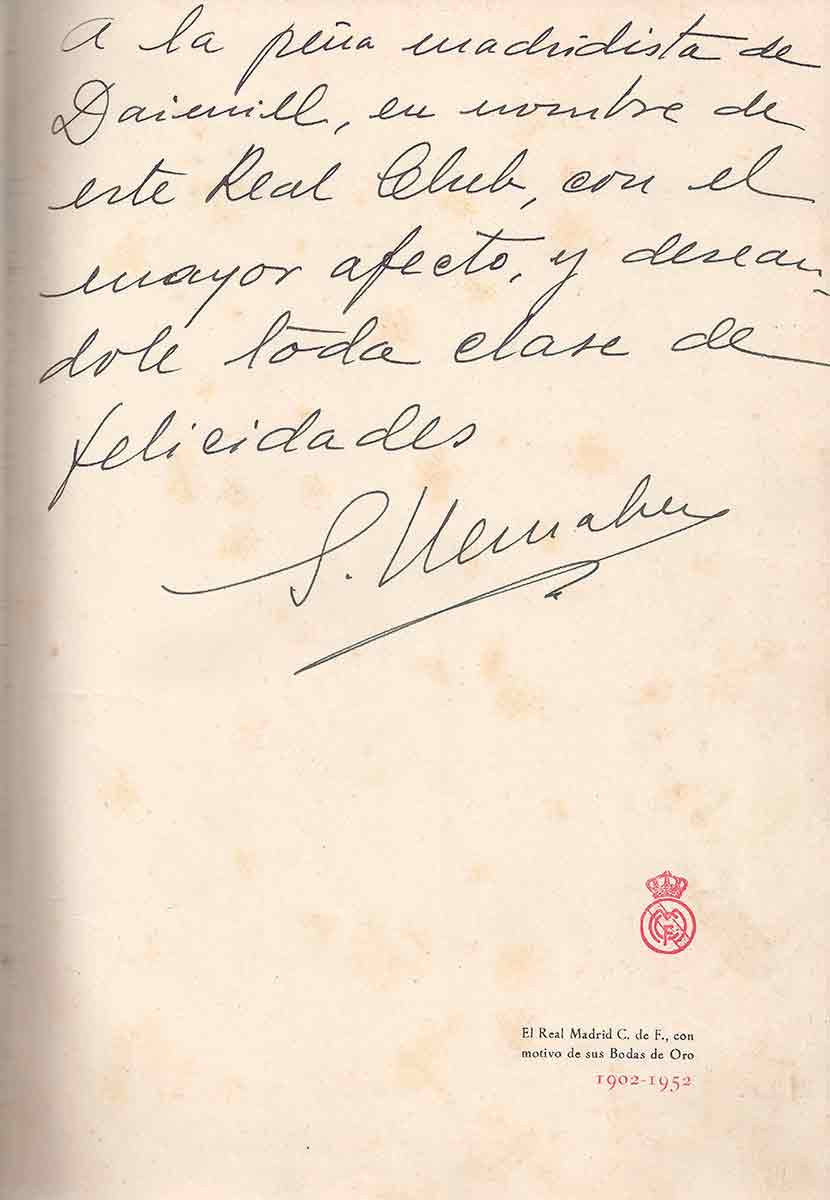 A la peña madridista de
Daimiell, en nombre de
este Real Club, con el
mayor afecto, y desean-
dole toda clase de
felicidades
S. Bernabeu
El Real Madrid C. de F., con
motivo de sus Bodas de Oro
1902-1952